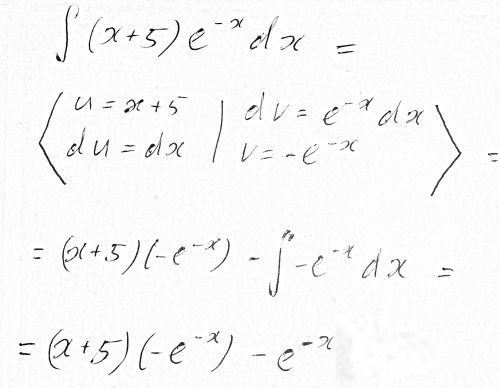 ∫ (x+5) e^{-x} dx =
⟨ u = x+5 | dv = e^{-x} dx
du = dx | v = -e^{-x} ⟩ =
= (x+5)(-e^{-x}) - ∫ -e^{-x} dx =
= (x+5)(-e^{-x}) - e^{-x}